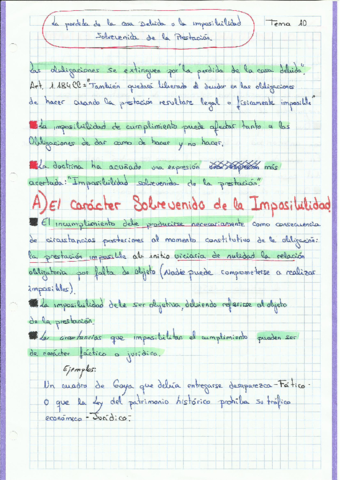 La perdida de la cosa Debida o la imposibilidad
Tema 10
Sobrevenida de la Prestación
Las obligaciones se extinguen por "la perdida de la cosa debida"
Art. 1.184 CC = "También quedará liberado el deudor en las obligaciones
de hacer cuando la prestación resultare legal o físicamente imposible"
La imposibilidad de cumplimiento puede afectar tanto a las
Obligaciones de dar como de hacer y no hacer.
La doctrina ha acuñado una expresión más
acertada: "Imposibilidad sobrevenida de la prestación."
A) El carácter Sobrevenido de la Imposibilidad
El incumplimiento debe producirse necesariamente como consecuencia
de circustancias posteriores al momento constitutivo de la obligación:
la prestación imposible ab initio viciaría de nulidad la relación
obligatoria por falta de objeto (Nadie puede comprometerse a realizar
imposibles).
La imposibilidad debe ser objetiva, debiendo referirse al objeto
de la prestación.
Las que imposibilitan el cumplimiento pueden ser
de carácter fáctico o jurídico.
Ejemplos:
Un cuadro de Goya que debía entregarse desaparezca - Fático.
O que la Ley del patrimonio histórico prohíba su tráfico
económico - Jurídico.